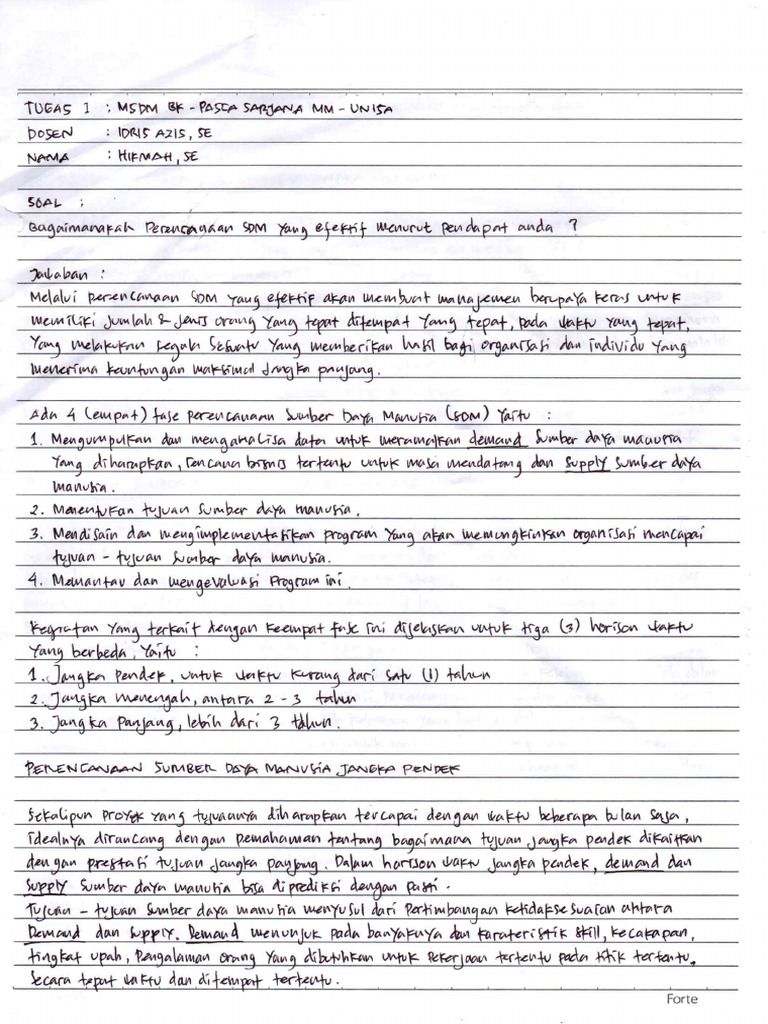 TUGAS I : MSDM BK - PASCA SARJANA MM - UNISA
DOSEN : IDRIS AZIS, SE
NAMA : HIKMAH, SE
SOAL :
Bagaimanakah Perencanaan SDM yang efektif menurut pendapat anda ?
Jawaban :
Melalui perencanaan SDM yang efektif akan membuat manajemen berupaya keras untuk
memiliki jumlah & jenis orang yang tepat ditempat yang tepat, pada waktu yang tepat,
yang melakukan segala sesuatu yang memberikan hasil bagi organisasi dan individu yang
menerima keuntungan maksimal jangka panjang.
Ada 4 (empat) fase perencanaan Sumber Daya Manusia (SDM) yaitu :
1. Mengumpulkan dan menganalisa data untuk meramalkan demand sumber daya manusia
yang diharapkan, rencana bisnis tertentu untuk masa mendatang dan supply sumber daya
manusia.
2. Menentukan tujuan sumber daya manusia.
3. Mendisain dan mengimplementasikan program yang akan memungkinkan organisasi mencapai
tujuan - tujuan sumber daya manusia.
4. Memantau dan mengevaluasi program ini.
Kegiatan yang terkait dengan keempat fase ini dijelaskan untuk tiga (3) horison waktu
yang berbeda, yaitu :
1. Jangka pendek, untuk waktu kurang dari satu (1) tahun
2. Jangka menengah, antara 2 - 3 tahun
3. Jangka panjang, lebih dari 3 tahun.
PERENCANAAN SUMBER DAYA MANUSIA JANGKA PENDEK
Sekalipun proyek yang tujuannya diharapkan tercapai dengan waktu beberapa bulan saja,
idealnya dirancang dengan pemahaman tentang bagaimana tujuan jangka pendek dikaitkan
dengan prestasi tujuan jangka panjang. Dalam horison waktu jangka pendek, demand dan
supply sumber daya manusia bisa diprediksi dengan pasti.
Tujuan - tujuan sumber daya manusia menyusul dari pertimbangan ketidaksesuaian antara
Demand dan supply. Demand menunjuk pada banyaknya dan karateristik skill, kecakapan,
tingkat upah, pengalaman orang yang dibutuhkan untuk pekerjaan tertentu pada titik tertentu,
secara tepat waktu dan ditempat tertentu.
Forte